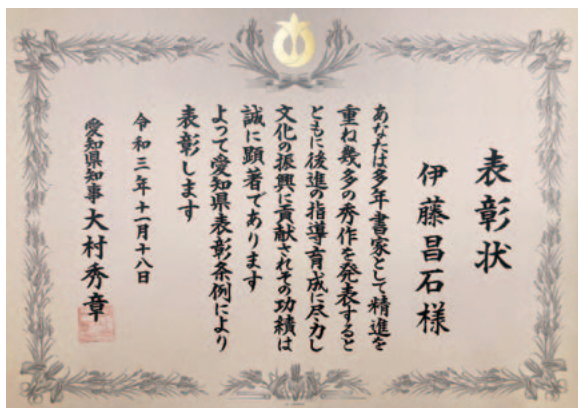 表彰状
伊藤昌石様
あなたは多年書家として精進を
重ね幾多の秀作を発表すると
ともに後進の指導育成に尽力し
文化の振興に貢献されその功績は
誠に顕著であります
よって愛知県表彰条例により
表彰します
令和三年十一月十八日
愛知県知事大村秀章